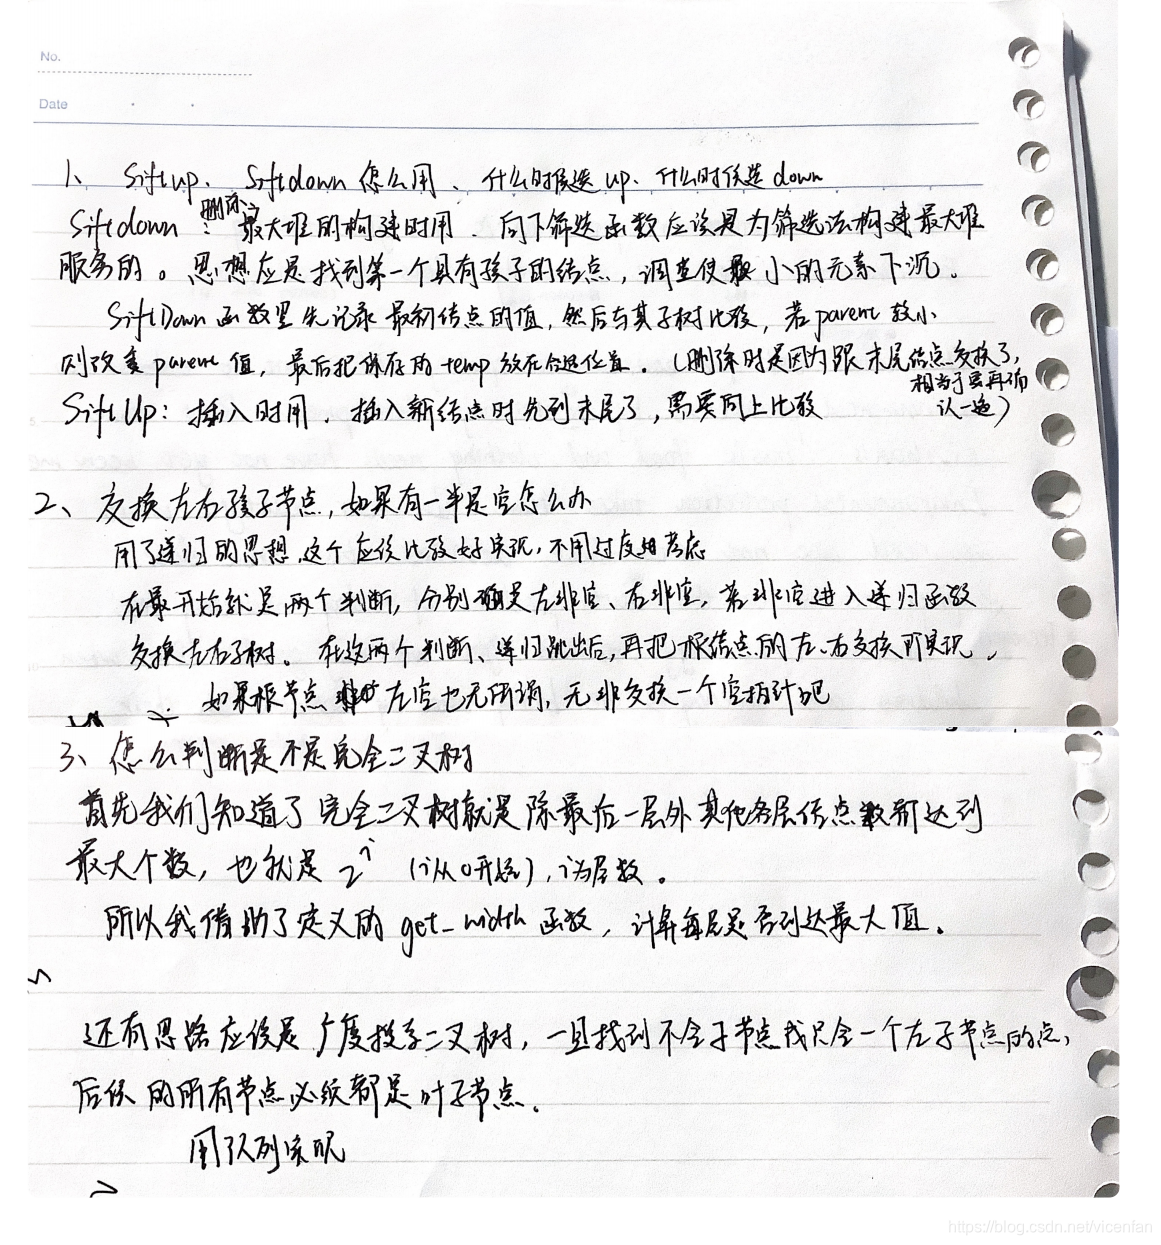 No.
Date
1、 Siftup、 Siftdown 怎么用、什么时候选 up、什么时候选 down
Siftdown : 删除、最大堆的构建时用、向下筛选函数应该是为筛选法构建最大堆
服务的。思想应是找到第一个具有孩子的结点，调查使最小的元素下沉。
SiftDown 函数里先记录最初结点的值，然后与其子树比较，若 parent 较小
则改变 parent 值，最后把保存的 temp 放在合适位置。（删除时是因为跟末尾结点交换了，
相当于要再确
认一遍）
SiftUp：插入时用．插入新结点时先到末尾了，需要向上比较
2、交换左右孩子节点，如果有一半是空怎么办
用了递归的思想，这个应该比较好实现，不用过度考虑
在最开始就是两个判断，分别确是左非空、右非空，若非空进入递归函数
交换左右子树。在这两个判断、递归跳出后，再把根结点的左、右交换可实现。
如果根节点左空也无所谓，无非交换一个空指针吧
3、怎么判断是不是完全二叉树
首先我们知道了完全二叉树就是除最后一层外其他各层结点数都达到
最大个数，也就是 2^i （i从0开始），i为层数。
所以我借助了定义的 get_width 函数，计算每层是否到达最大值。
还有思路应该是广度搜索二叉树，一旦找到不含子节点或只含一个左子节点的点，
后续的所有节点必须都是叶子节点．
用队列实现
https://blog.csdn.net/vicenfan